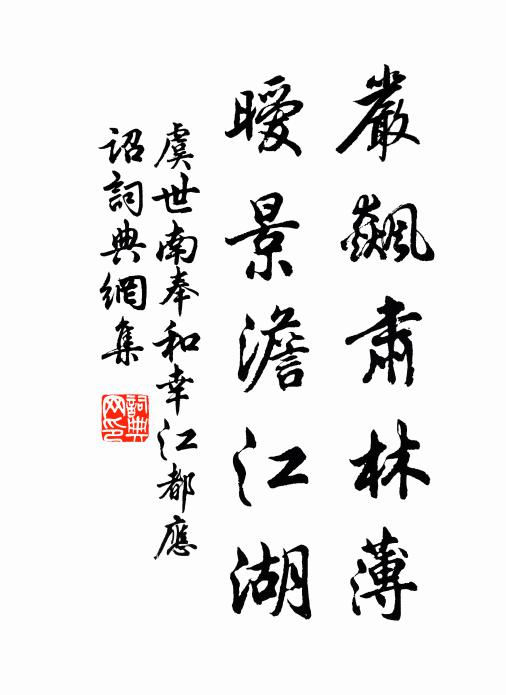 嚴飆肅林薄
曖景澹江湖
虞世南奉和幸江都應
詔詞典網集
詞典
网印